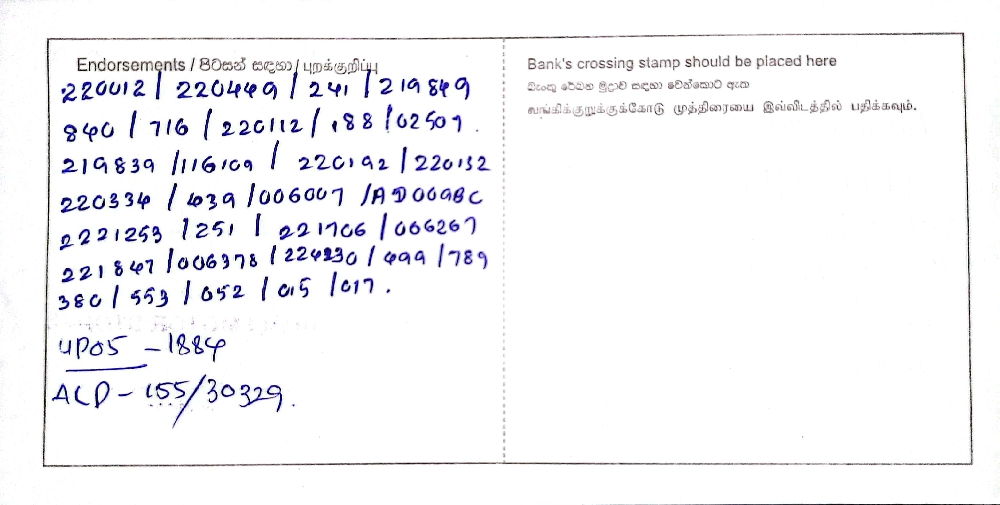 Endorsements / පිටසන් සඳහා / புறக்குறிப்பு
220012 / 220449 / 241 / 219849
840 / 716 / 220112 / 188 / 02509.
219839 / 116109 / 220192 / 220132
220334 / 439 / 006007 / AD009BC
2221253 / 251 / 221706 / 006267
221847 / 006378 / 224230 / 499 / 789
380 / 553 / 052 / 015 / 017.
UPOS - 1884
ACD - 155/30329.
Bank's crossing stamp should be placed here
බැංකු රේඛන මුද්‍රාව සඳහා වෙන්කොට ඇත
வங்கிக்குறுக்குக்கோடு முத்திரையை இவ்விடத்தில் பதிக்கவும்.